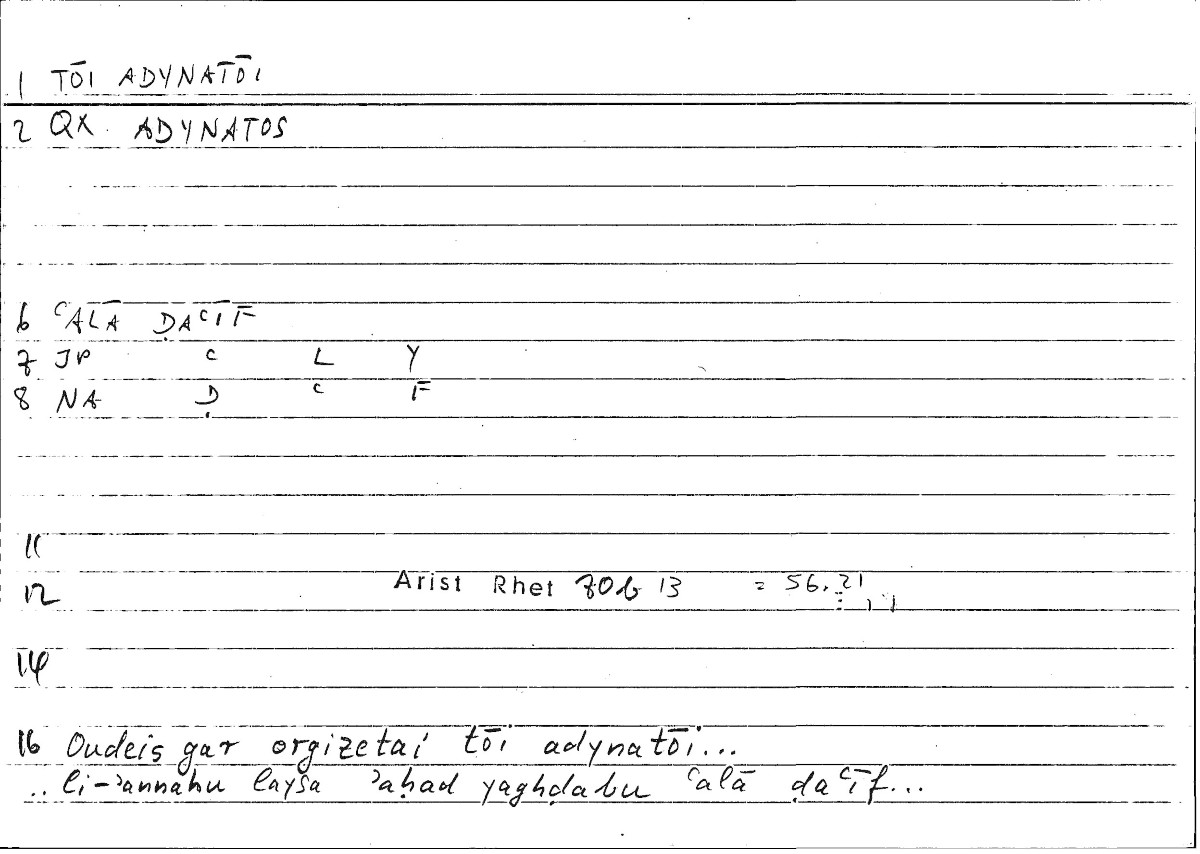 1 TŌI ADYNATŌI
2 QX. ADYNATOS
6 ʿALĀ ḌAʿĪF
7 JP ʿ L Y
8 NA Ḍ ʿ F
11
12 Arist Rhet 70b 13 = 56,21
14
16 Oudeis gar orgizetai tōi adynatōi...
.. li-ʾannahu laysa ʾaḥad yaghḍabu ʿalā ḍaʿīf...